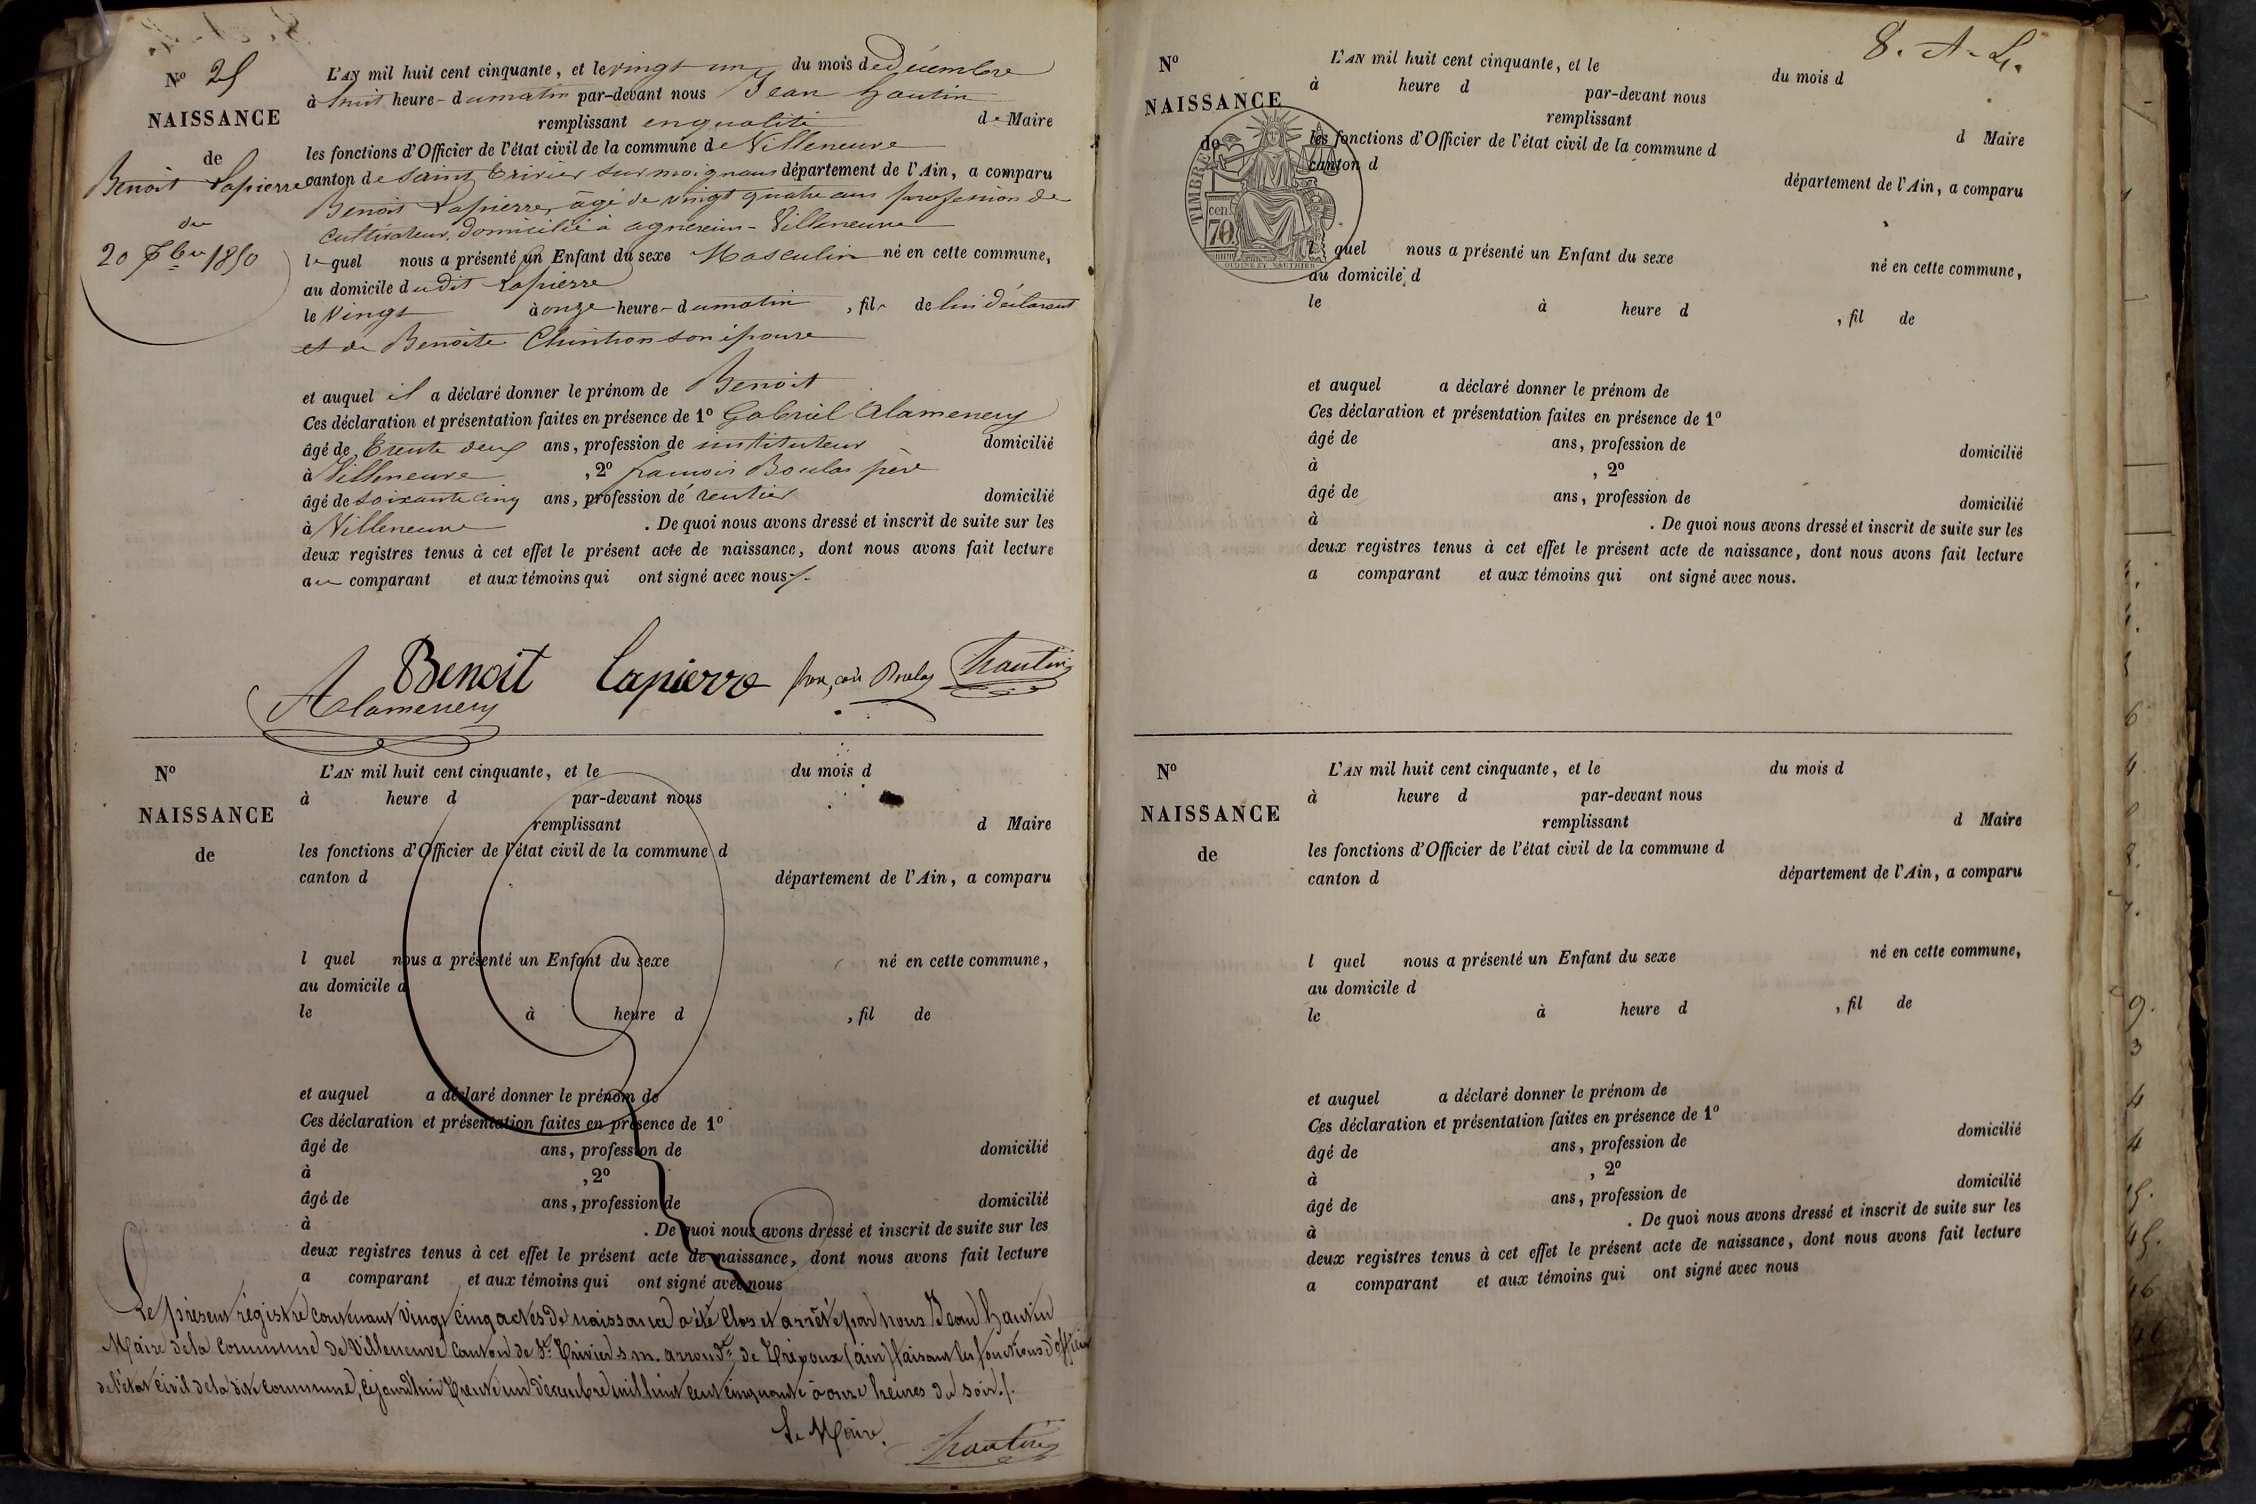 N° 25
NAISSANCE
de
Benoit Lapierre
du
20 Xbre 1850
L'AN mil huit cent cinquante, et le vingt un du mois de Décembre
à huit heure du matin par-devant nous Jean hautin
remplissant en qualité de Maire
les fonctions d'Officier de l'état civil de la commune de Villeneuve
canton de Saint Trivier sur moignans département de l'Ain, a comparu
Benoit Lapierre, âgé de vingt quatre ans profession de
cultivateur, domicilié à agnereins - Villeneuve
lequel nous a présenté un Enfant du sexe Masculin né en cette commune,
au domicile dudit Lapierre
le Vingt à onze heure du matin, fils de lui déclarant
et de Benoite son épouse
et auquel il a déclaré donner le prénom de Benoit
Ces déclaration et présentation faites en présence de 1° Gabriel Alamenery
âgé de Trente deux ans, profession de instituteur domicilié
à Villeneuve, 2° francois Boulas père
âgé de soixante cinq ans, profession de rentier domicilié
à Villeneuve. De quoi nous avons dressé et inscrit de suite sur les
deux registres tenus à cet effet le présent acte de naissance, dont nous avons fait lecture
au comparant et aux témoins qui ont signé avec nous.
Benoit Lapierre françois Boulas hautin
Alamenery
N°
NAISSANCE
de
L'AN mil huit cent cinquante, et le du mois d
à heure d par-devant nous
remplissant d Maire
les fonctions d'Officier de l'état civil de la commune d
canton d département de l'Ain, a comparu
l quel nous a présenté un Enfant du sexe né en cette commune,
au domicile d
le à heure d , fil de
et auquel a déclaré donner le prénom de
Ces déclaration et présentation faites en présence de 1°
âgé de ans, profession de domicilié
à , 2°
âgé de ans, profession de domicilié
à . De quoi nous avons dressé et inscrit de suite sur les
deux registres tenus à cet effet le présent acte de naissance, dont nous avons fait lecture
a comparant et aux témoins qui ont signé avec nous
Le présent régistre contenant vingt cinq actes de naissance a été clos et arrêté par nous Jean hautin
Maire de la commune de Villeneuve canton de St Trivier s. m. arrondt de Trévoux (ain) faisant les fonctions d'officier
de l'état civil de la dite commune, cejourd'hui trente un décembre mil huit cent cinquante à onze heures du soir.
Le Maire.
hautin
8. A. L.
N°
NAISSANCE
de
TIMBRE
70 cen.
L'AN mil huit cent cinquante, et le du mois d
à heure d par-devant nous
remplissant d Maire
les fonctions d'Officier de l'état civil de la commune d
canton d département de l'Ain, a comparu
l quel nous a présenté un Enfant du sexe né en cette commune,
au domicile d
le à heure d , fil de
et auquel a déclaré donner le prénom de
Ces déclaration et présentation faites en présence de 1°
âgé de ans, profession de domicilié
à , 2°
âgé de ans, profession de domicilié
à . De quoi nous avons dressé et inscrit de suite sur les
deux registres tenus à cet effet le présent acte de naissance, dont nous avons fait lecture
a comparant et aux témoins qui ont signé avec nous.
N°
NAISSANCE
de
L'AN mil huit cent cinquante, et le du mois d
à heure d par-devant nous
remplissant d Maire
les fonctions d'Officier de l'état civil de la commune d
canton d département de l'Ain, a comparu
l quel nous a présenté un Enfant du sexe né en cette commune,
au domicile d
le à heure d , fil de
et auquel a déclaré donner le prénom de
Ces déclaration et présentation faites en présence de 1°
âgé de ans, profession de domicilié
à , 2°
âgé de ans, profession de domicilié
à . De quoi nous avons dressé et inscrit de suite sur les
deux registres tenus à cet effet le présent acte de naissance, dont nous avons fait lecture
a comparant et aux témoins qui ont signé avec nous